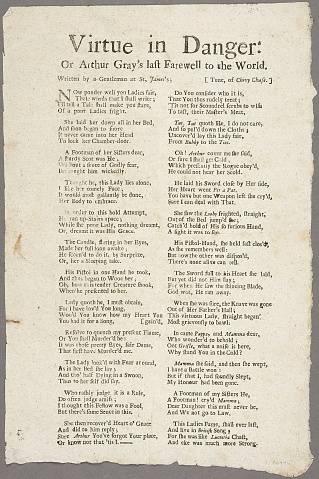 Virtue in Danger:
Or Arthur Gray's last Farewell to the World.
Written by a Gentleman at St. James's;
[ Tune, of Chevy Chase. ]
NOw ponder well you Ladies fair,
These words that I shall write;
I'll tell a Tale shall make you stare,
Of a poor Ladies fright.
She laid her down all in her Bed,
And soon began to snore
It never came into her Head
To lock her Chamber-door.
A Footman of her Sisters dear,
A sturdy Scot was He;
Without a sense of Godly fear,
bethought him wickedly.
Thought he, this Lady lies alone,
I like her comely Face;
It would most gallantly be done,
Her Body to embrace.
In order to this bold Attempt,
He ran up-stairs apace;
While the poor Lady, nothing dreamt,
Or, dreamt it was His Grace.
The Candle, flaring in her Eyes,
Made her full soon awake;
He scorn'd to do it, by Surprize,
Or, her a Sleeping take.
His Pistol in one Hand he took,
And thus began to Wooe her;
Oh, how this tender Creature shook,
When he presented to her.
Lady quoth he, I must obtain,
For I have lov'd You long,
Wou'd You know how my Heart You
You had it for a Song. [gain'd,
Resolve to quench my present Flame,
Or You shall Murder'd be;
It was those pretty Eyes, fair Dame,
That first have Murder'd me.
The Lady look'd with Fear around,
As in her Bed she lay;
And tho' half Dying in a Swoon,
Thus to her self did say.
Who rashly judge it is a Rule,
Do often judge amiss;
I thought this Fellow was a Fool,
But there's some Sense in this.
She then recover'd Heart o' Grace
And did to him reply;
Sure Arthur You've forgot Your place,
Or know not that 'tis I.
Do You consider who it is,
That You thus rudely treat;
'Tis not for Scoundrel scrubs to wish
To taste, their Master's Meat.
Tut, Tut quoth He, I do not care,
And so pull'd down the Cloths;
Uncover'd lay this Lady fair,
From Bubby to the Toe.
Oh! Arthur cover me she said,
Or sure I shall get Cold,
Which presently the Rogue obey'd,
He could not hear her Scold.
He laid his Sword close by Her side,
Her Heart went Pit a Pat.
You have but one Weapon left she cry'd,
Sure I can deal with That.
She saw the Looby frighted, straight,
Out of the Bed jump'd she;
Catch'd hold of His so furious Hand,
A sight it was to see.
His Pistol-Hand, she held fast clos'd,
As she remembers well;
But how the other was dispos'd,
There's none alive can tell.
The Sword full to his Heart she laid,
But yet did not Him slay;
For when He saw the shining Blade,
God wot, He ran away.
When she was sure, the Knave was gone
Out of Her Father's Hall;
This virtuous Lady, straight began
Most grievously to bawl.
In came Pappa and Mamma dear,
Who wonder'd to behold;
Oh! Grissle, what a noise is here,
Why stand You in the Cold?
Mamma she said, and then she wept,
I have a Battle won;
But if that I, had soundly Slept,
My Honour had been gone.
A Footman of my Sisters He,
A Footman! cry'd Mamma,
Dear Daughter this must never be,
And we Not go to Law.
This Ladies Fame, shall ever last,
And live in British Song;
For she was like Lucretia Chast,
And eke was much more Strong.